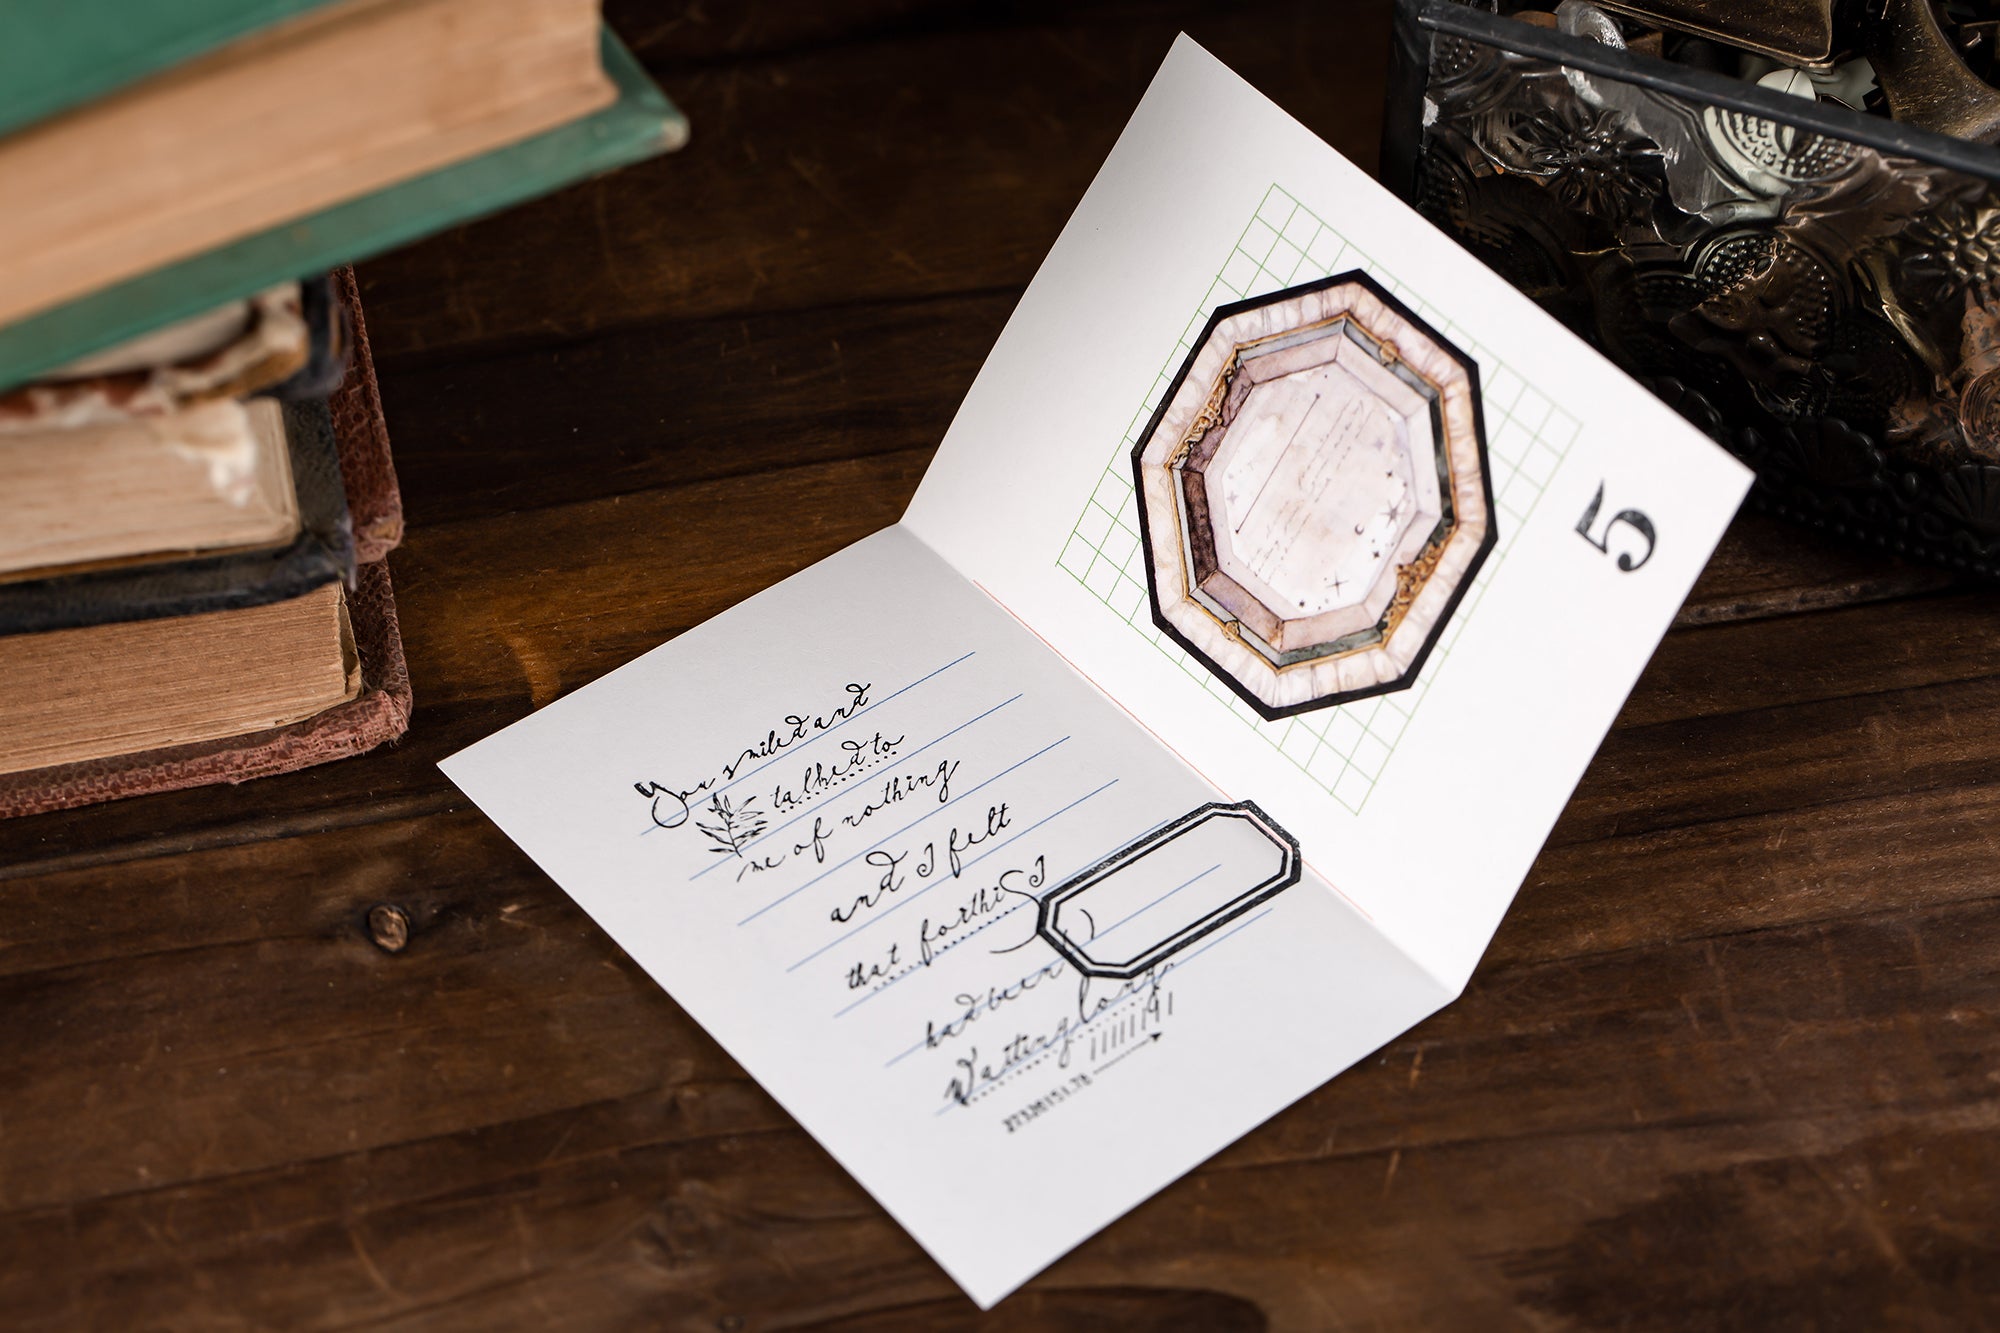 You smiled and
talked to
me of nothing
and I felt
that for this I
had been
Waiting long.
5